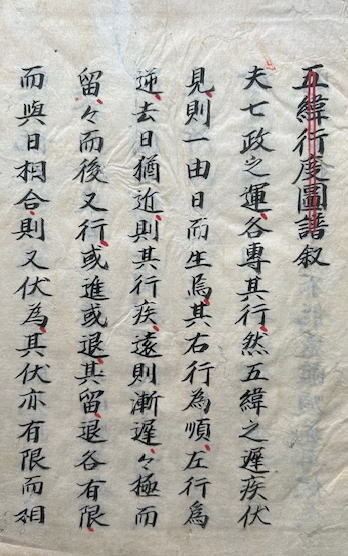 五緯行度圖譜叙
夫七政之運各專其行然五緯之遲疾伏
見則一由日而生焉其右行為順左行為
逆去日猶近則其行疾遠則漸遲々極而
留々而後又行或進或退其留退各有限
而與日相合則又伏為其伏亦有限而相